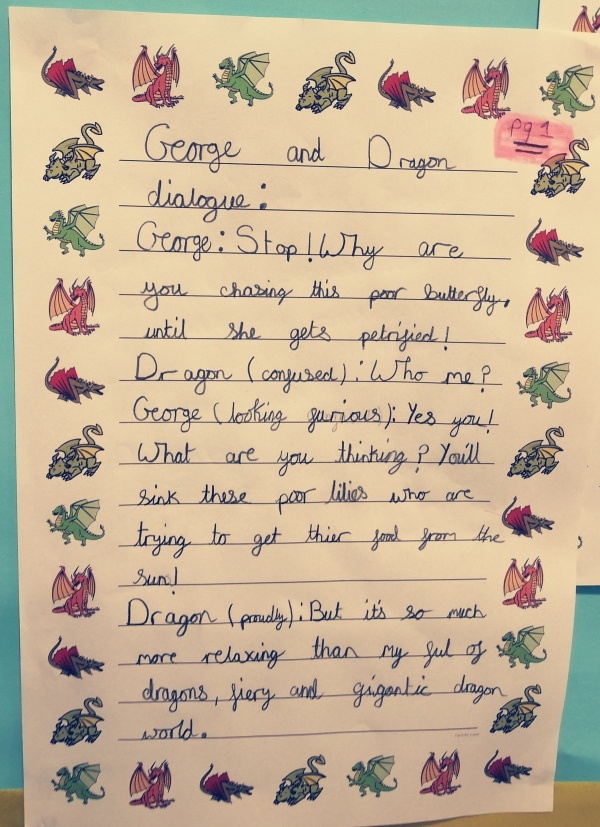 pg 1
George and Dragon
dialogue:
George: Stop! Why are
you chasing this poor butterfly,
until she gets petrified!
Dragon (confused): Who me?
George (looking furious): Yes you!
What are you thinking? You'll
sink these poor lilies who are
trying to get thier food from the
sun!
Dragon (proudly): But it's so much
more relaxing than my ful of
dragons, fiery and gigantic dragon
world.